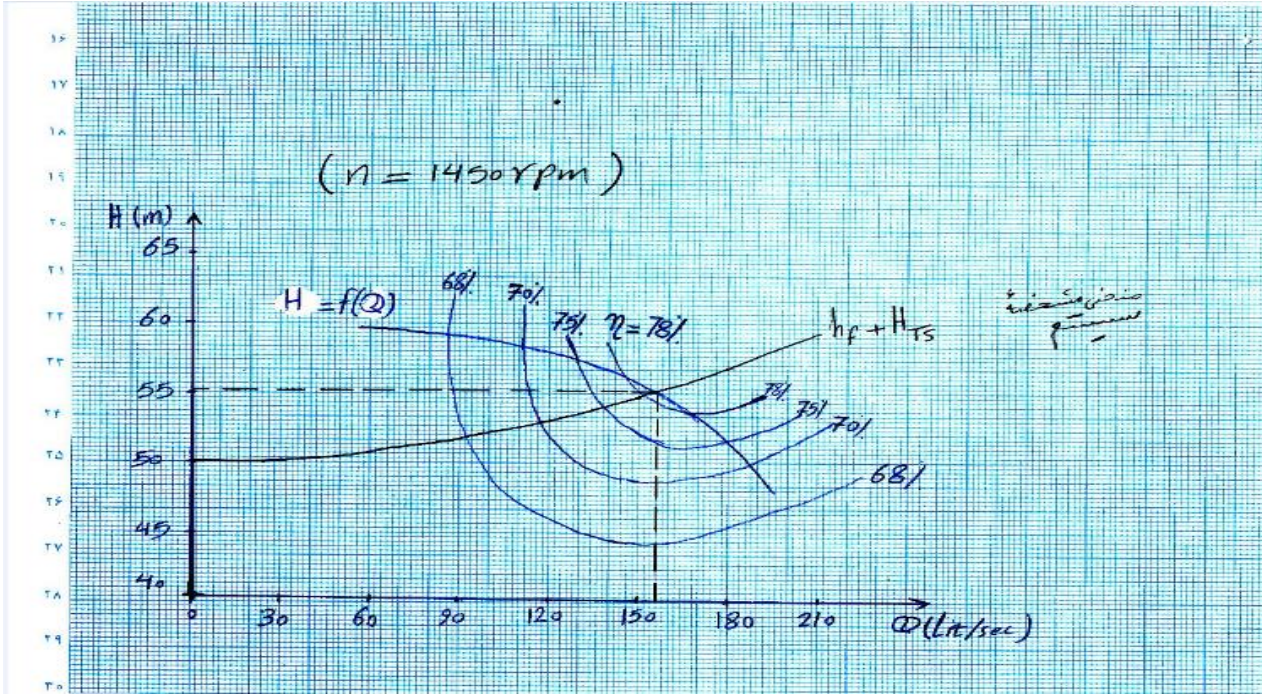 ۱۶
۱۷
۱۸
۱۹
۲۰
۲۱
۲۲
۲۳
۲۴
۲۵
۲۶
۲۷
۲۸
۲۹
۳۰
(n = 1450 rpm)
H (m)
65
60
55
50
45
40
H = f(Q)
68%
70%
75%
η = 78%
hf + HTS
منحنی مشخصهٔ
سیستم
78%
75%
70%
68%
0 30 60 90 120 150 180 210 Q (Lit/sec)